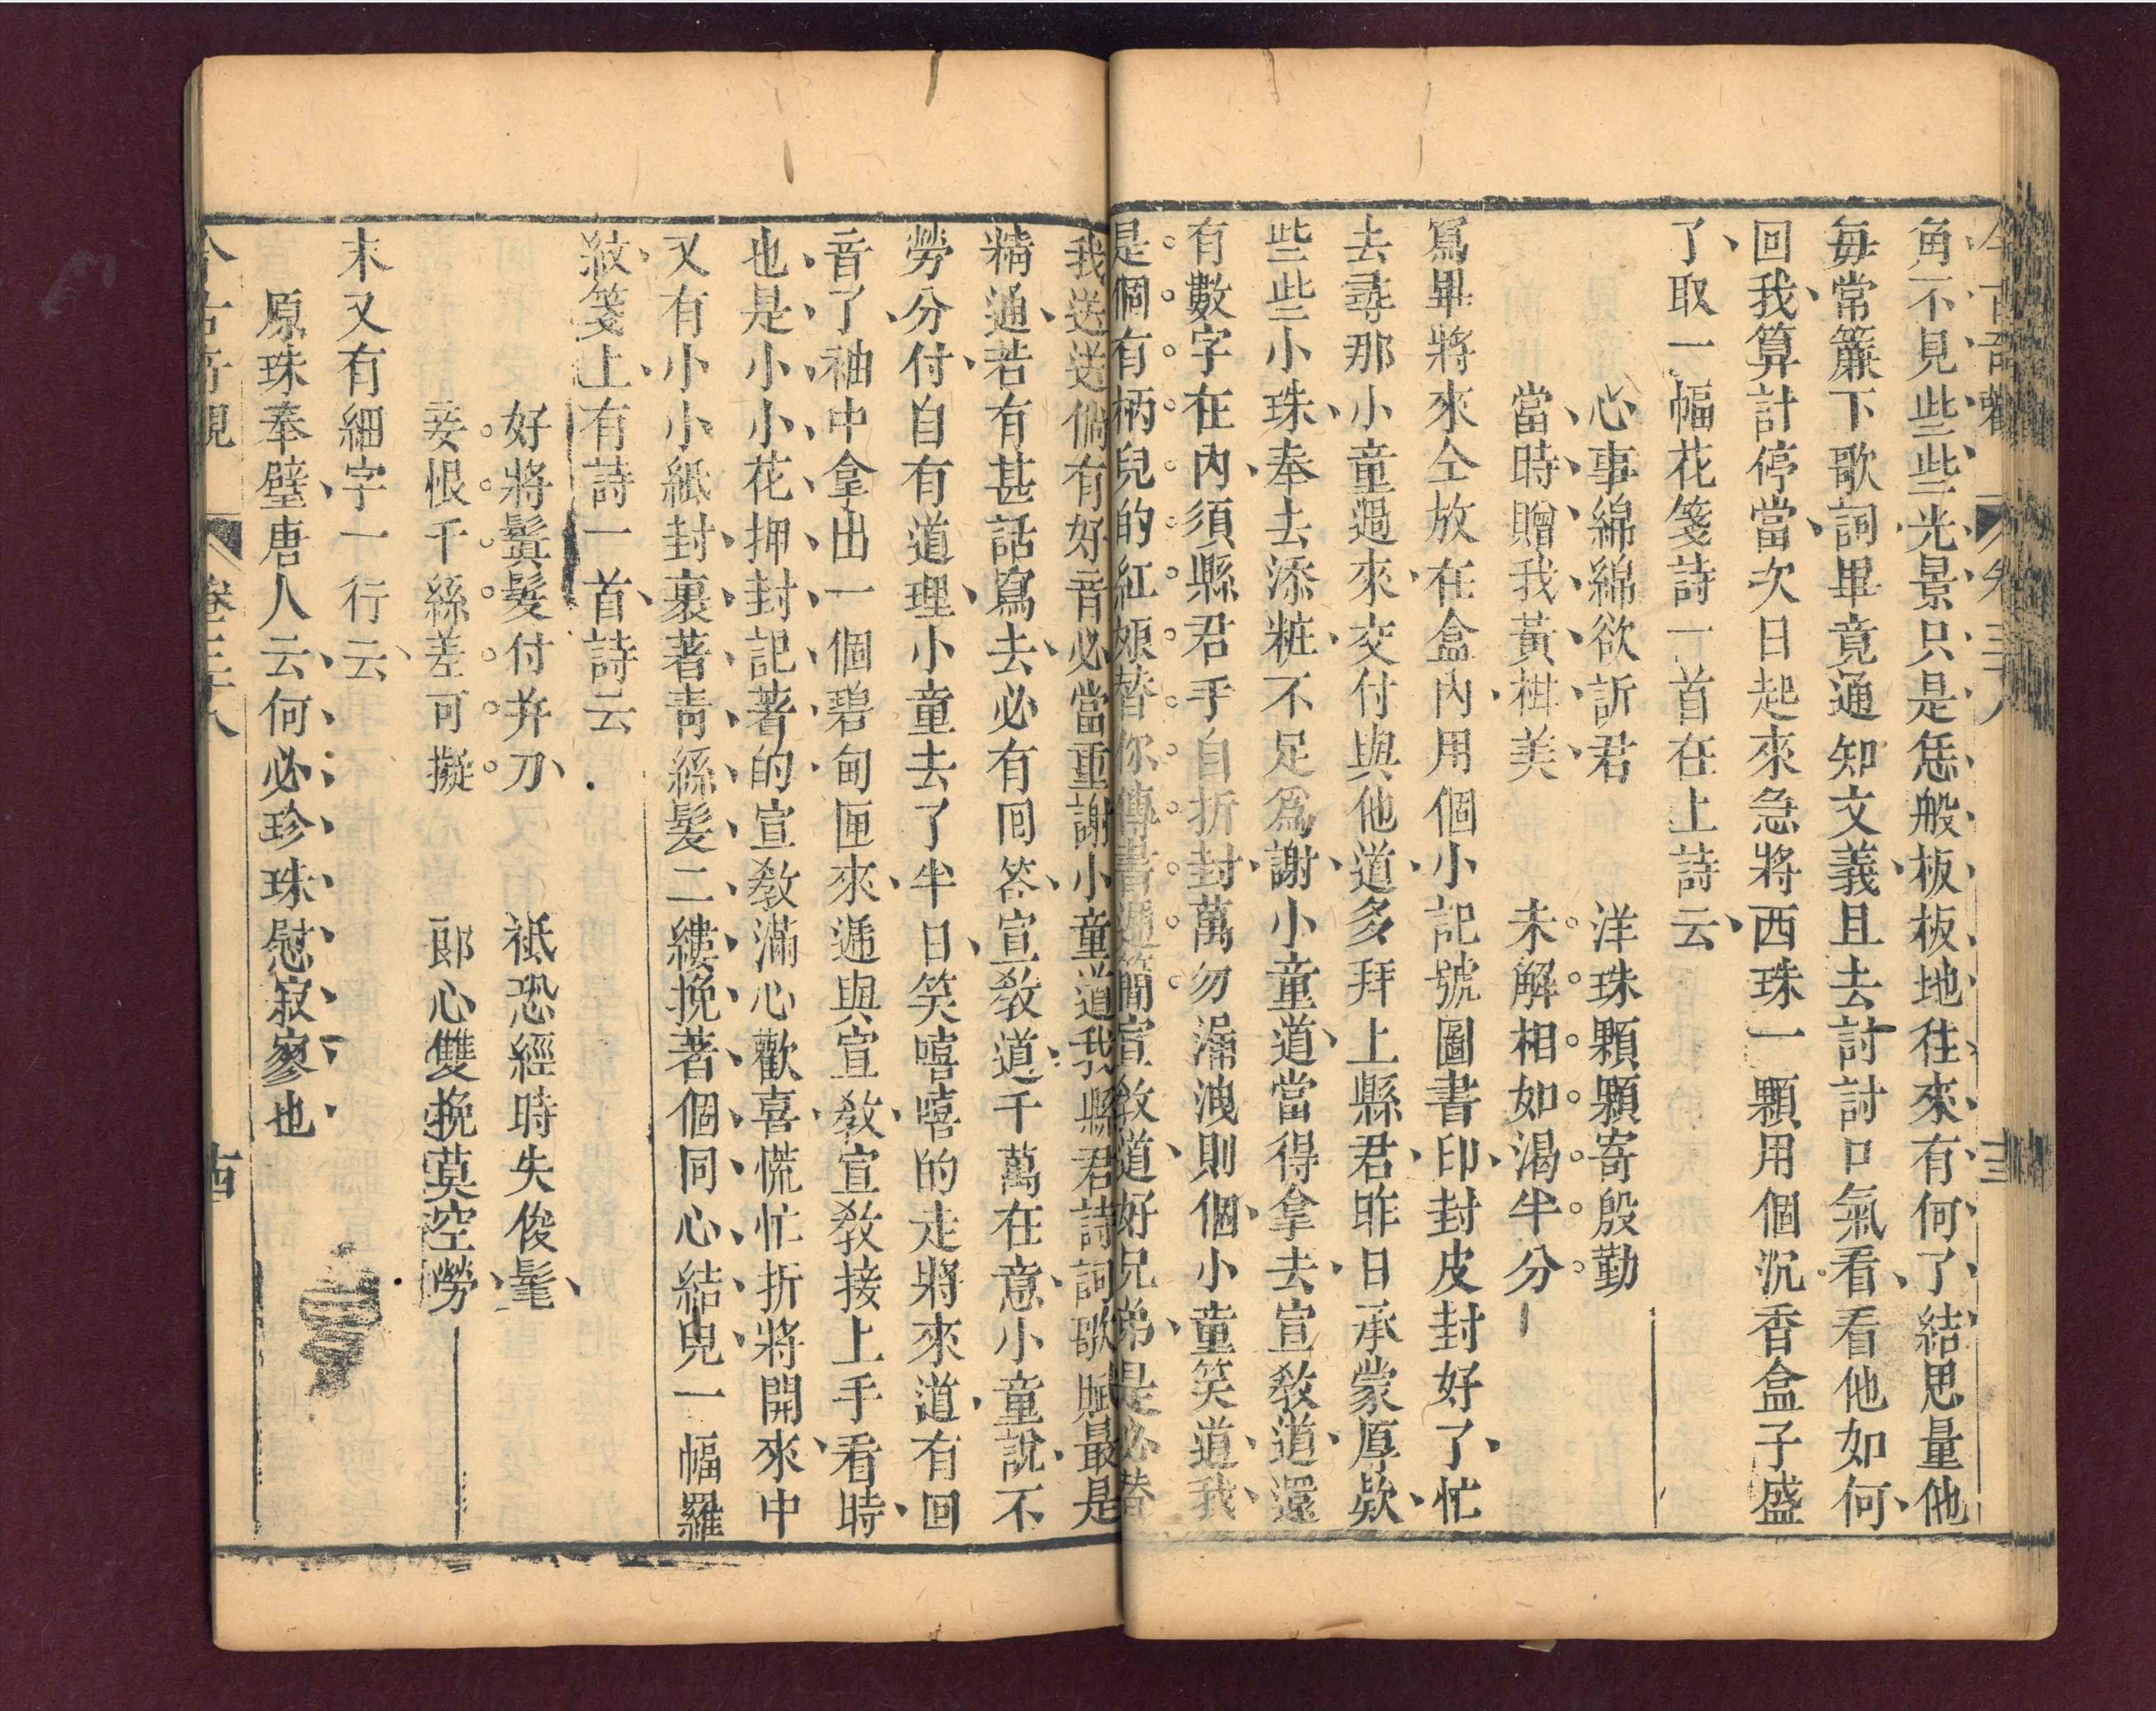 今古奇觀 卷三十八 十三
角不見些些光景只是恁般板板地往來有何了結思量他
每常簾下歌詞畢竟通知文義且去討討口氣看看他如何
回我算計停當次日起來急將西珠一顆用個沉香盒子盛
了取一幅花箋詩一首在上詩云
心事綿綿欲訴君 洋珠顆顆寄殷勤
當時贈我黃柑美 未解相如渴半分
寫畢將來仝放在盒內用個小記號圖書印封皮封好了忙
去尋那小童過來交付與他道多拜上縣君昨日承蒙厚欵
些些小珠奉去添粧不足爲謝小童道當得拿去宣教道還
有數字在內須縣君手自折封萬勿漏洩則個小童笑道我
是個有柄兒的紅娘替你傳書遞簡宣敎道好兄弟是必替
我送送倘有好音必當重謝小童道我縣君詩詞歌賦最是
精通若有甚話寫去必有回答宣敎道千萬在意小童說不
勞分付自有道理小童去了半日笑嘻嘻的走將來道有回
音了袖中拿出一個碧甸匣來遞與宣敎宣敎接上手看時
也是小小花押封記著的宣敎滿心歡喜慌忙折將開來中
又有小小紙封裹著青絲髮二縷挽著個同心結兒一幅羅
紋箋上有詩一首詩云
好將鬒髮付并刀 祗恐經時失俊髦
妾恨千絲差可擬 郎心雙挽莫空勞
末又有細字一行云
原珠奉璧唐人云何必珍珠慰寂寥也
今古奇觀 卷三十八 十四